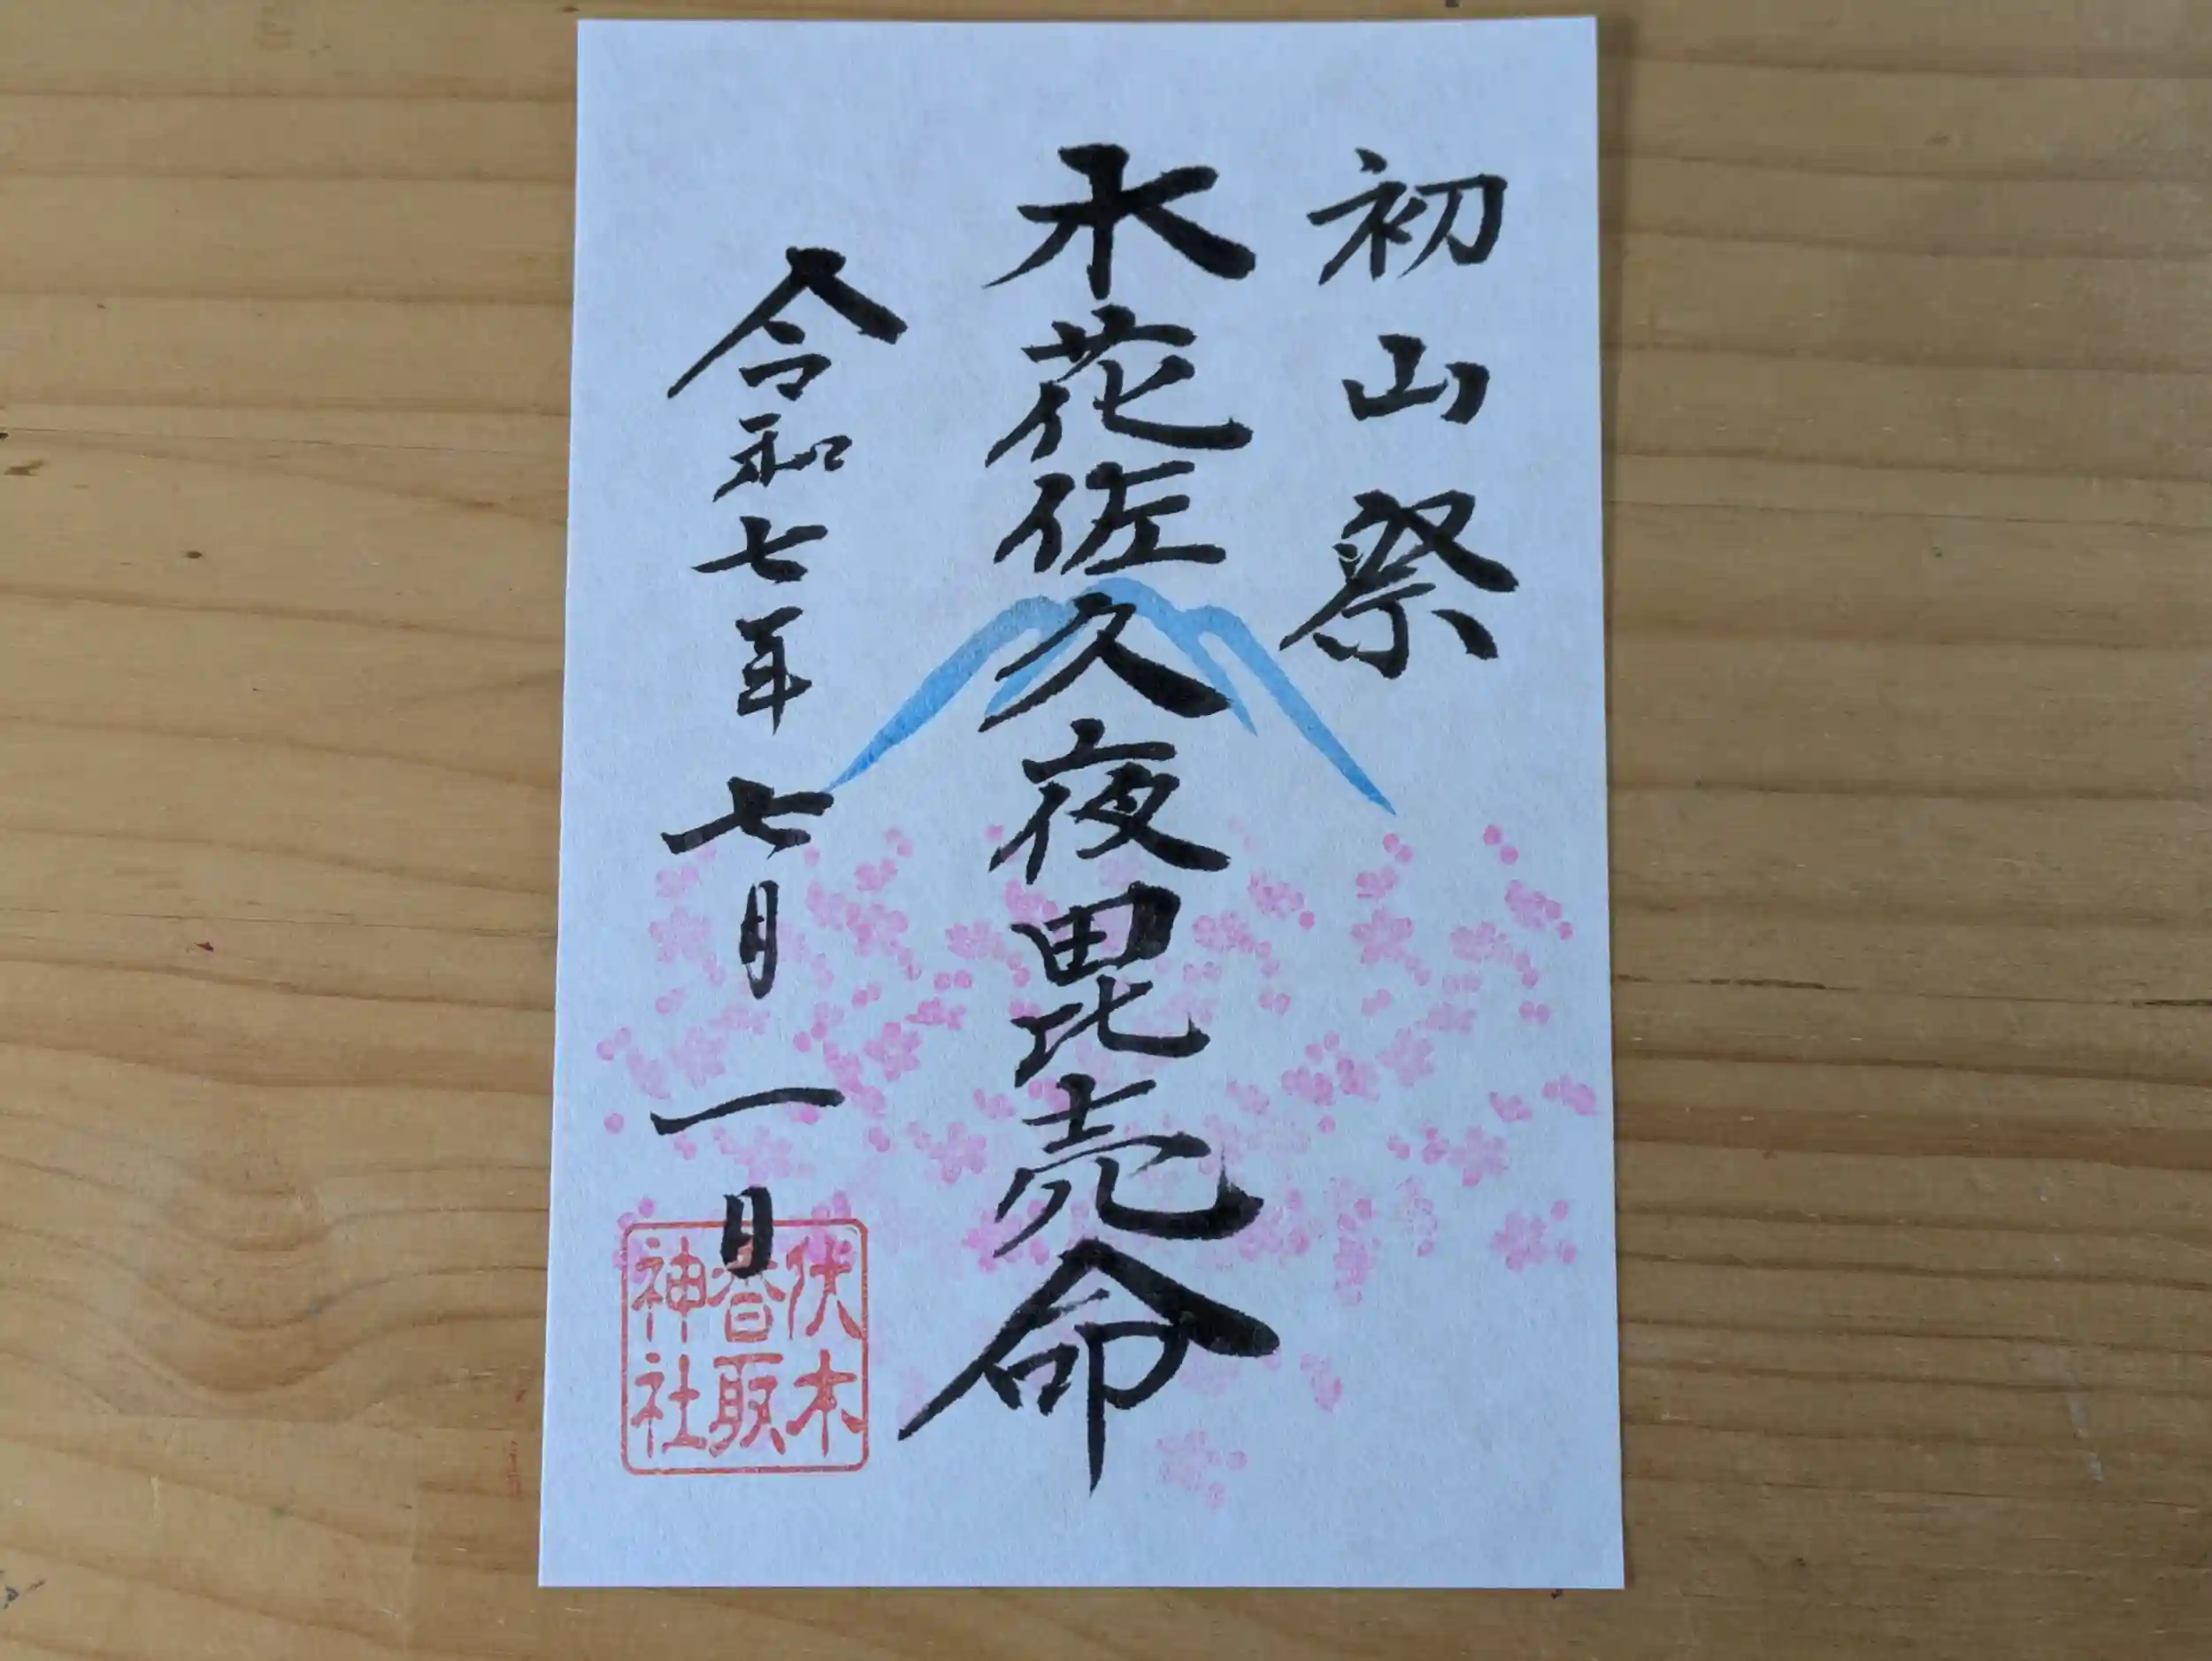 初山祭
木花佐久夜毘売命
令和七年七月一日
伏木
香取
神社